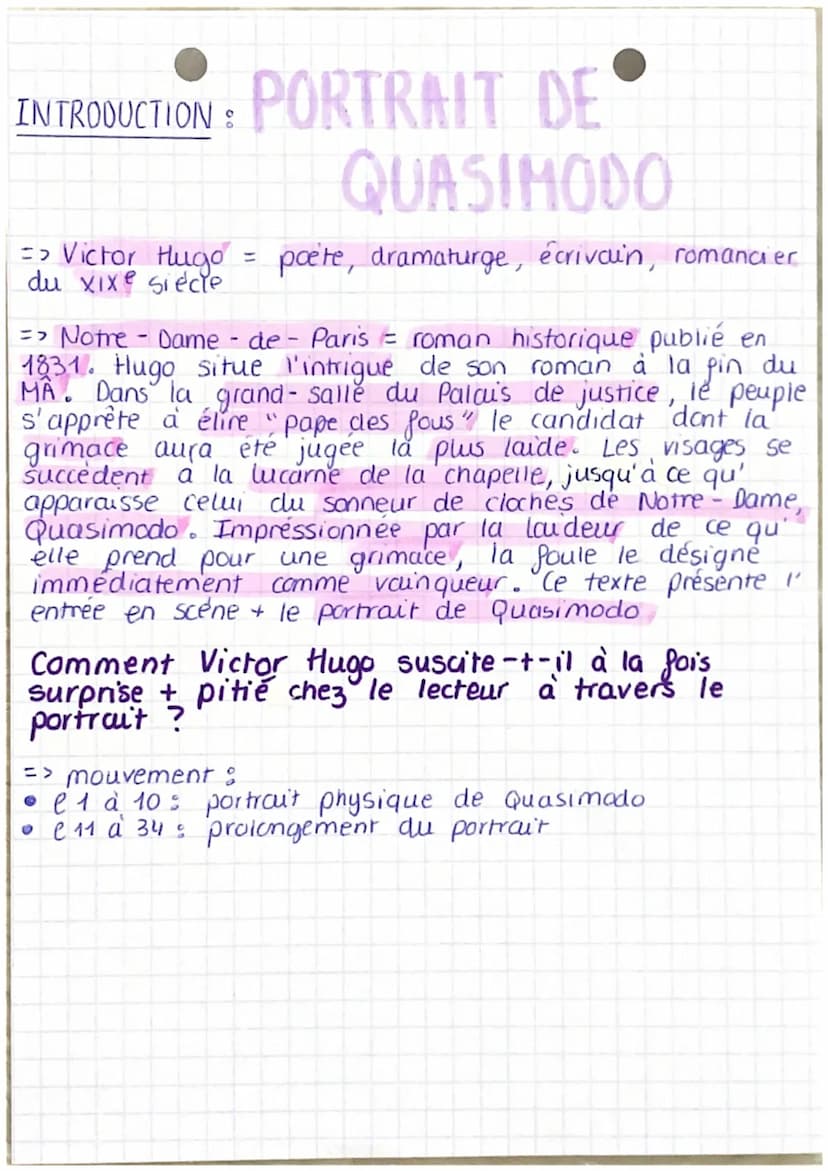 INTRODUCTION : PORTRAIT DE
QUASIMODO
=> Victor Hugo = poète, dramaturge, écrivain, romancier
du XIXe siècle
=> Notre-Dame-de-Paris = roman historique publié en
1831. Hugo situe l'intrigue de son roman à la fin du
MÂ. Dans la grand-salle du Palais de justice, le peuple
s'apprête à élire "pape des fous" le candidat dont la
grimace aura été jugée la plus laide. Les visages se
succèdent à la lucarne de la chapelle, jusqu'à ce qu'
apparaisse celui du sonneur de cloches de Notre-Dame,
Quasimodo. Impréssionnée par la laideur de ce qu'
elle prend pour une grimace, la foule le désigne
immédiatement comme vainqueur. Ce texte présente l'
entrée en scène + le portrait de Quasimodo
Comment Victor Hugo suscite-t-il à la fois
surprise + pitié chez le lecteur à travers le
portrait ?
=> mouvement :
• l 1 à 10 : portrait physique de Quasimodo
• l 11 à 34 : prolongement du portrait